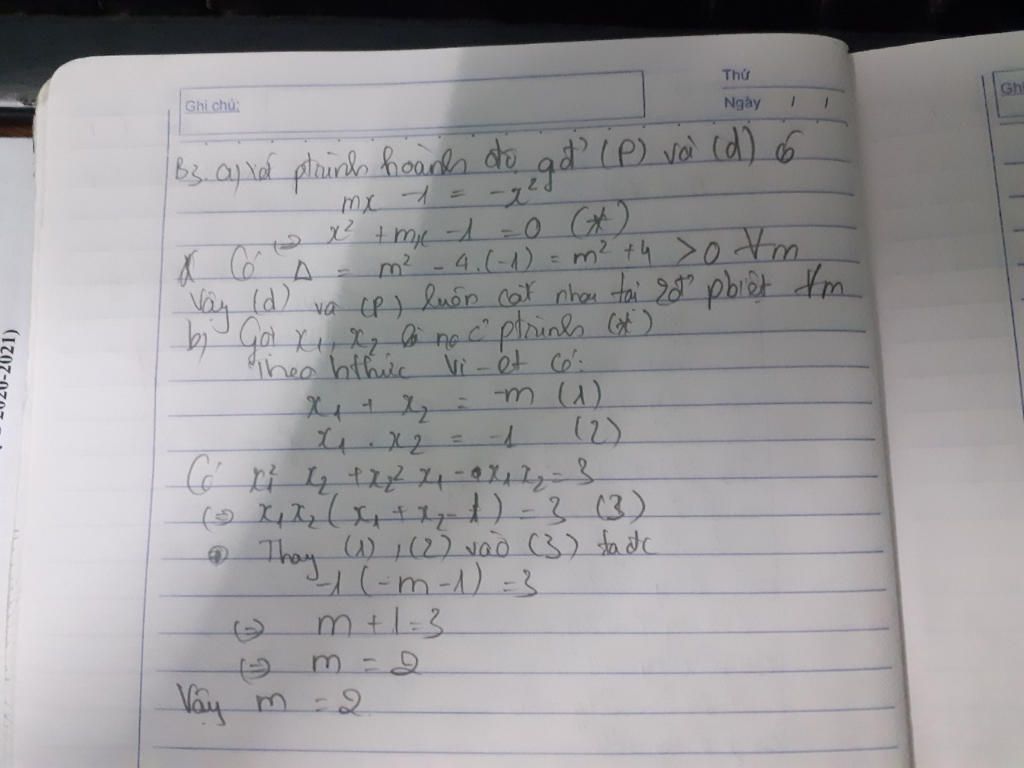 Thứ
Ghi chú:
Ngày / /
B3. a) Xét ptrình hoành độ gđ' (P) và (d) có
mx - 1 = -x²
(=) x² + mx - 1 = 0 (*)
Có Δ = m² - 4.(-1) = m² + 4 > 0 ∀m
Vậy (d) và (P) luôn cắt nhau tại 2đ' pbiệt ∀m
b) Gọi x₁, x₂ là no c' ptrình (*)
Theo hthức Vi-et có:
x₁ + x₂ = -m (1)
x₁ . x₂ = -1 (2)
Có x₁² x₂ + x₂² x₁ - x₁x₂ = 3
(=) x₁x₂ (x₁ + x₂ - 1) = 3 (3)
Thay (1), (2) vào (3) ta đc
-1 (-m - 1) = 3
(=) m + 1 = 3
(=) m = 2
Vậy m = 2
2020-2021)
Ghi